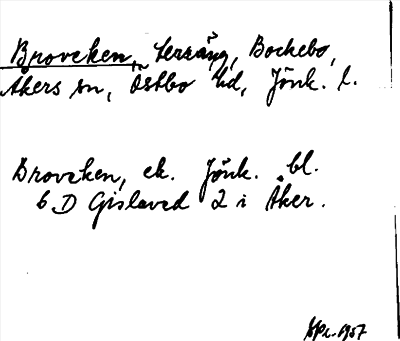 Broveken, teräng, Bockebo,
Åkers sn, Östbo hd, Jönk. l.
Broveken, ek. Jönk. bl.
6 D Gislaved 2 i Åker.
1957